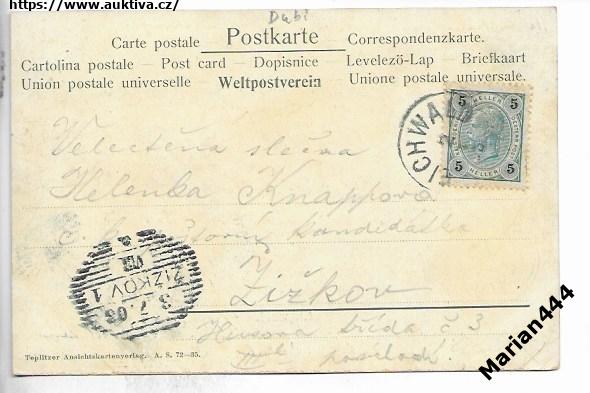 https://www.auktiva.cz/
Dubí
Carte postale Postkarte Correspondenzkarte.
Cartolina postale – Post card – Dopisnice – Levelező-Lap – Briefkaart
Union postale universelle Weltpostverein Unione postale universale.
5 5
HELLER HELLER
5 5
HELLER
ICHWALD
Velectěná slečna
Helenka Knappova
kandidátka
ŽIŽKOV 1
3.7.03
VIII
Žižkov
Husova třída č 3
Teplitzer Ansichtskartenverlag. A. S. 72–35.
Marian444